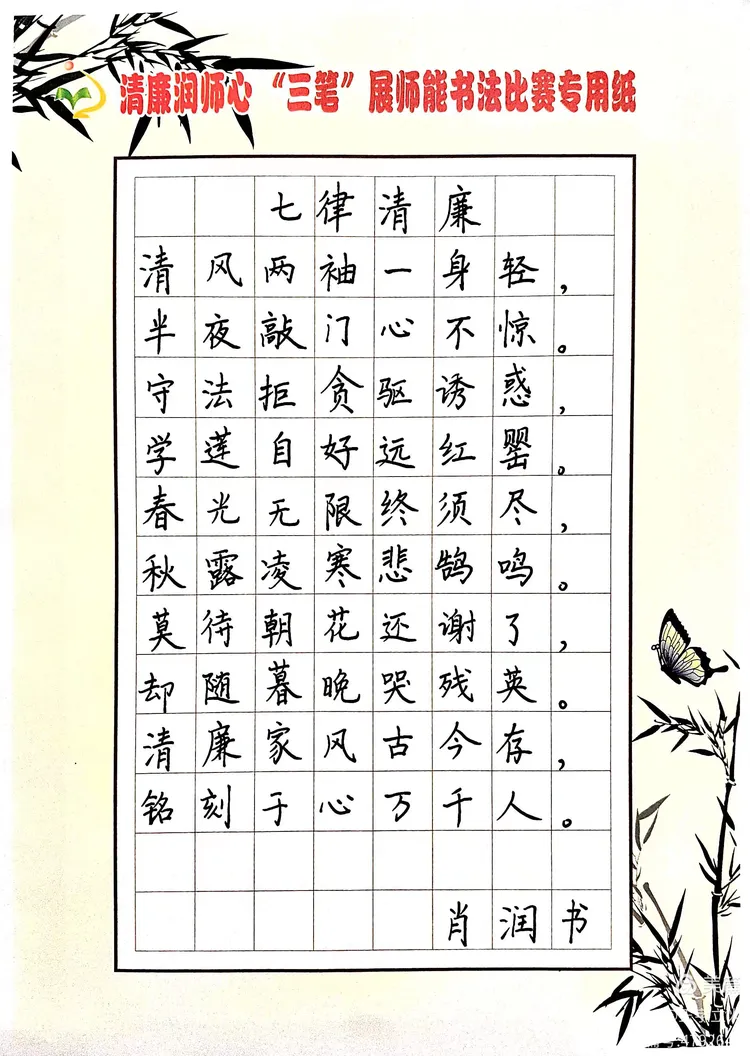 清廉润师心“三笔”展师能书法比赛专用纸
七律清廉
清风两袖一身轻，
半夜敲门心不惊。
守法拒贪驱诱惑，
学莲自好远红罂。
春光无限终须尽，
秋露凌寒悲鹄鸣。
莫待朝花还谢了，
却随暮晚哭残英。
清廉家风古今存，
铭刻于心万千人。
肖润书